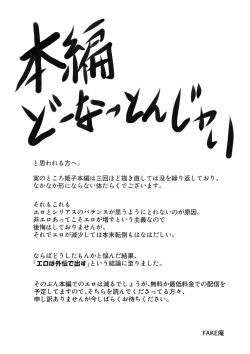 本編
どーなっとんじゃい
と思われる方へ。
実のところ姫子本編は三回ほど描き直しては没を繰り返しており、
なかなか形にならない体たらくでございます。
それもこれも
エロとシリアスのバランスが思うようにとれないのが原因。
非エロあってこそエロが増すという主義なので
後悔はしておりませんが、
それでエロが減少しては本末転倒もはなはだしい。
ならばどうしたもんかと悩んだ結果、
「エロは外伝で出す」という結論に至りました。
そのぶん本編でのエロは減るでしょうが、無料か最低料金での配信を
予定してますので、そちらを読んでくださってる方々、
申し訳ありませんが今しばらくお待ちください。
FAKE庵